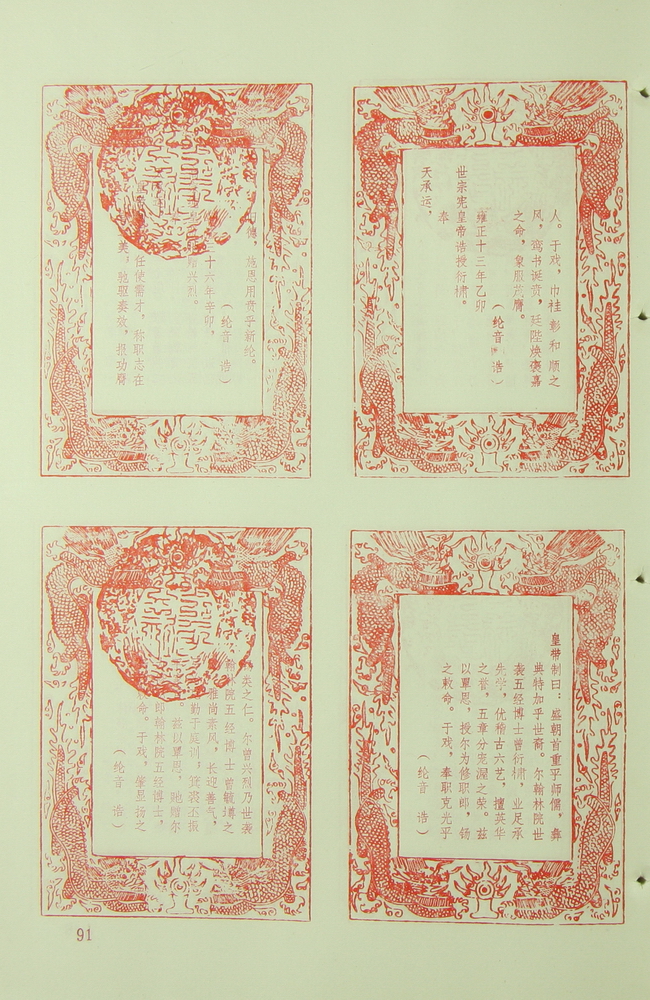 人。于戏,巾袿彰和顺之
风,鸾书诞贲,廷陛焕褒嘉
之命,象服
膺。
(纶音 诰)
雍正十三年乙卯
世宗宪皇帝诰授衍橚。
奉
天承运,
施恩用贲乎新纶。
(纶音 诰)
三十六年辛卯,
赠兴烈。
任使需才,称职志在
美;驰驱奏效,报功膺
皇帝制曰:盛朝首重乎师儒,彝
典特加乎世裔。尔翰林院世
袭五经博士曾衍橚,业足承
先学,优稽古六艺,擅英华
之誉,五章分宠渥之荣。兹
以覃恩,授尔为修职郎,锡
之敕命。于戏,奉职克光乎
(纶音 诰)
类之仁。尔曾兴烈乃世袭
翰林院五经博士曾毓墫之
雅尚素风,长迎善气,
勤于庭训,箕裘丕振
兹以覃恩,貤赠尔
即翰林院五经博士,
命。于戏,肇显扬之
(纶音 诰)
91